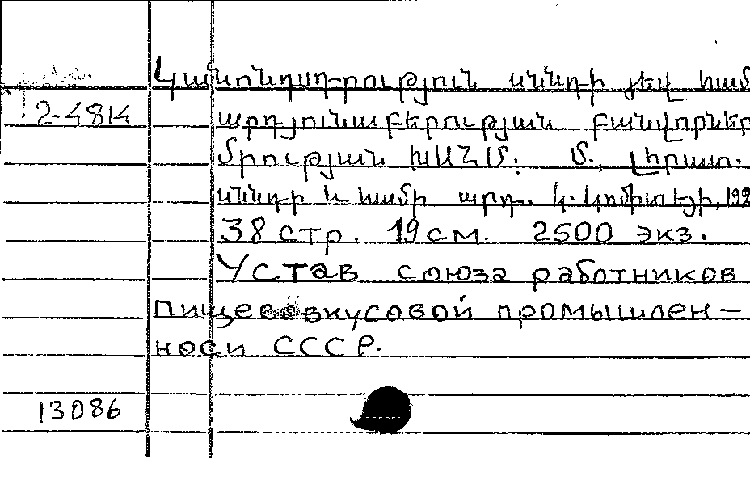 Կանոնադրություն սննդի յեվ համ
2-4814 արդյունաբերության բանվորներ
մրության ԽՍՀՄ. Մ. Լիրատ.
սննդի և համի արդ. կ. կոմիտեյի, 192
38 стр. 19 см. 2500 экз.
Устав союза работников
пищевовкусовой промышлен-
носи СССР.
13086